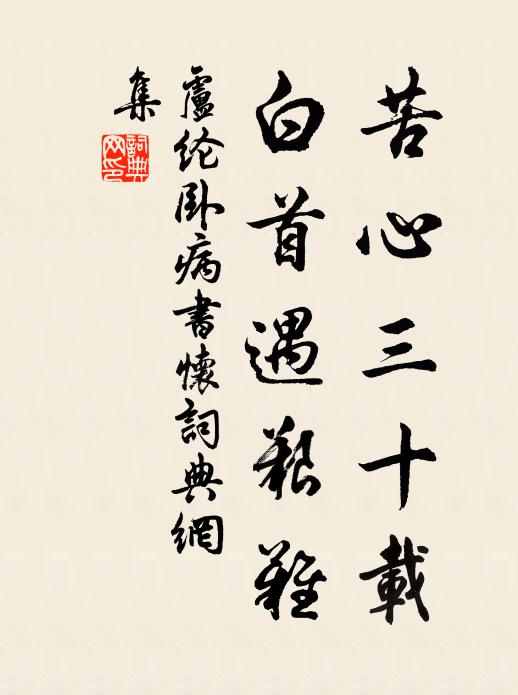 苦心三十載
白首遇艱難
盧纶卧病書懷詞典網
集
詞典
网印